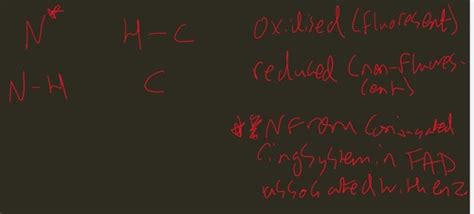 N* H-C oxidised (fluorescent)
N-H C reduced (non-fluores-
cent)
** N From Conjugated
ring system in FAD
associated with enz